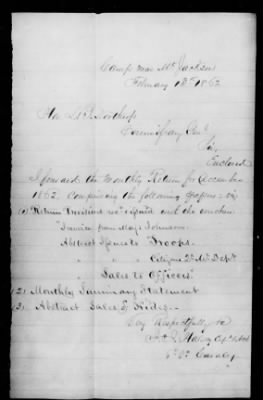 Camp near Mt Jackson
February 18th 1862
Col L. B. Northrop
Commissary Genl
Sir,
Enclosed
I forward the Monthly Return for December
1862, Comprising the following papers - viz
(1) Return Provisions recd issued and the vouchers
Invoice from Maj Johnson.
Abstract Issues to Troops.
" " " Citizens Dept
" Sales to Officers
(2) Monthly Summary Statement
(3) Abstract Sales of Hides.
Very Respectfully
Cavalry